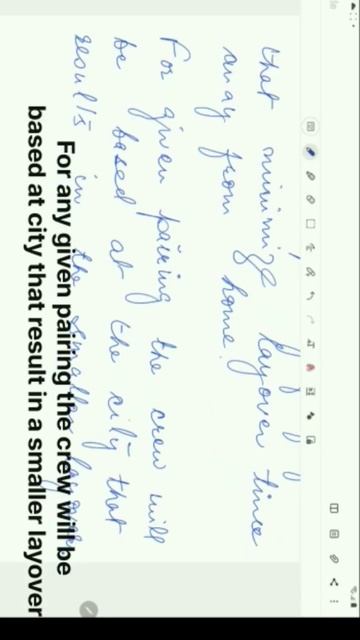 that minimize layover time
away from home.
For given pairing the crew will
be based at the city that
results in the smaller layover
For any given pairing the crew will be
based at city that result in a smaller layover